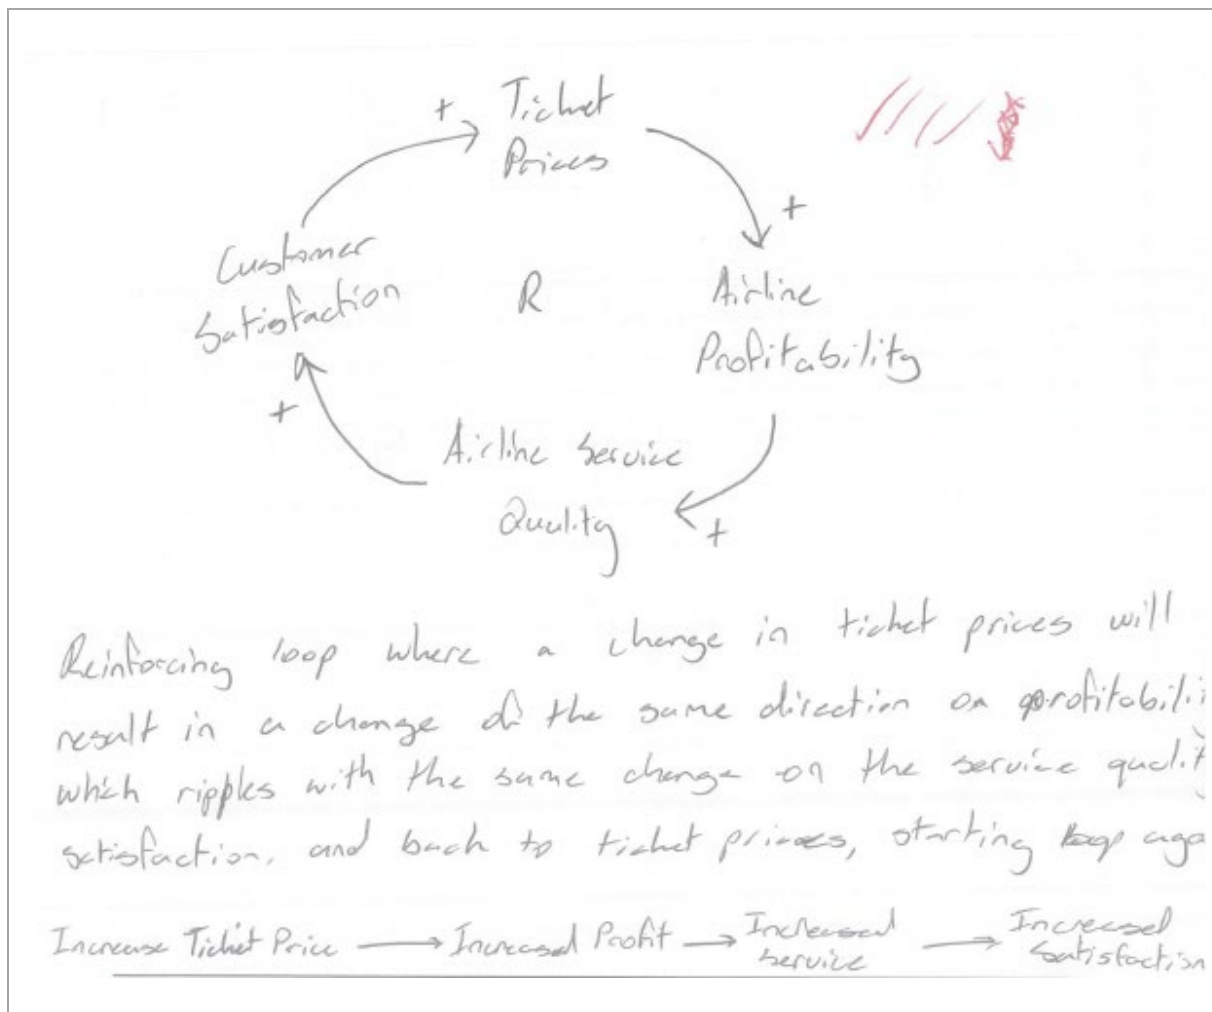 + Ticket
Prices
+
Customer
Satisfaction
R
Airline
Profitability
+
Airline Service
Quality
+
Reinforcing loop where a change in ticket prices will
result in a change of the same direction on profitabili
which ripples with the same change on the service qualit
satisfaction, and back to ticket prices, starting loop aga
Increase Ticket Price → Increased Profit → Increased Service → Increased Satisfaction